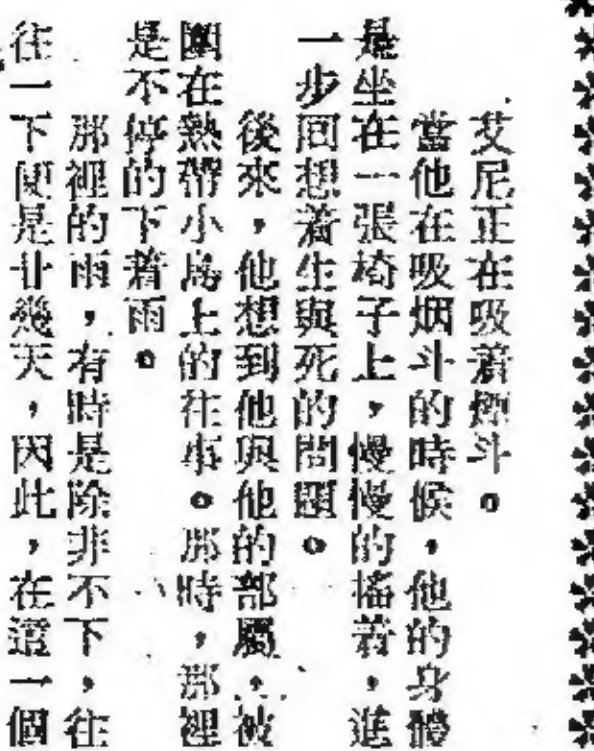 艾尼正在吸着煙斗。
當他在吸烟斗的時候，他的身體
是坐在一張椅子上，慢慢的搖着，進
一步回想着生與死的問題。
後來，他想到他與他的部屬，被
圍在熱帶小島上的往事。那時，那裡
是不停的下着雨。
那裡的雨，有時是除非不下，往
往一下便是廿幾天，因此，在這一個